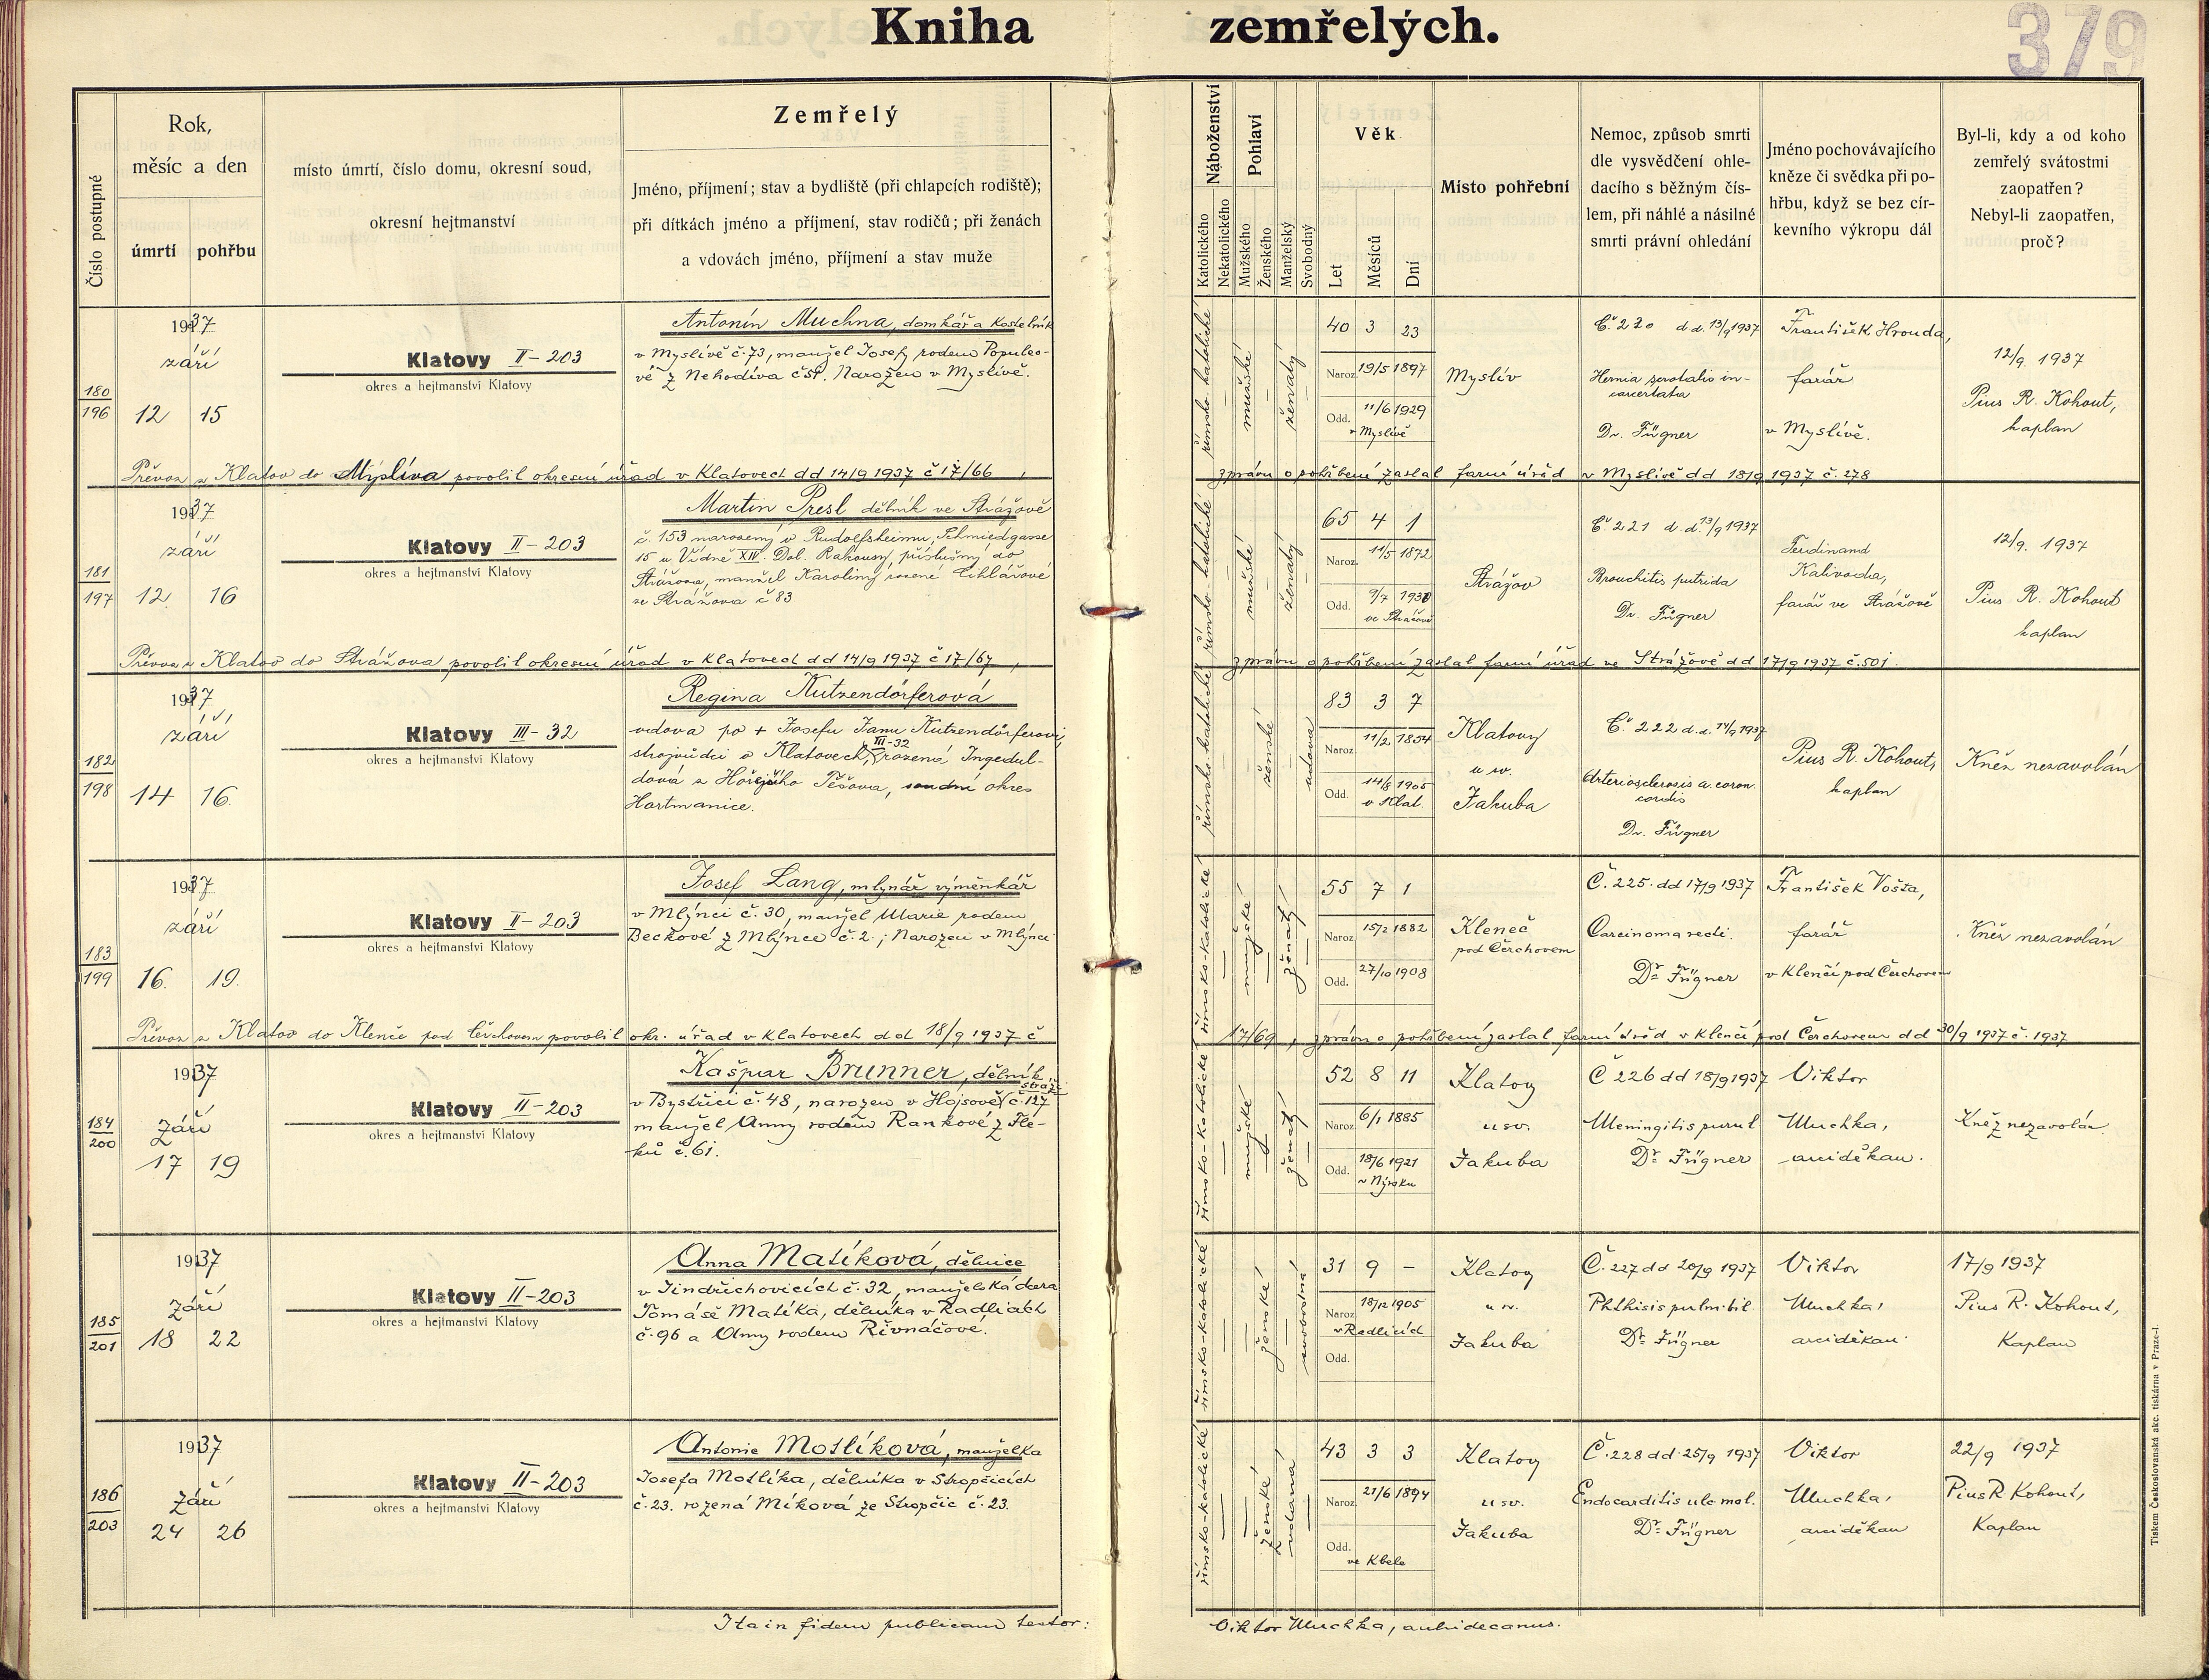 Kniha zemřelých.
379
Číslo postupné
Rok,
měsíc a den
úmrtí pohřbu
místo úmrtí, číslo domu, okresní soud,
okresní hejtmanství
Zemřelý
Jméno, příjmení; stav a bydliště (při chlapcích rodiště);
při dítkách jméno a příjmení, stav rodičů; při ženách
a vdovách jméno, příjmení a stav muže
Náboženství
Katolického
Nekatolického
Pohlaví
Mužského
Ženského
Manželský
Svobodný
Věk
Let
Měsíců
Dní
Místo pohřební
Nemoc, způsob smrti
dle vysvědčení ohle-
dacího s běžným čís-
lem, při náhlé a násilné
smrti právní ohledání
Jméno pochovávajícího
kněze či svědka při po-
hřbu, když se bez cír-
kevního výkropu dál
Byl-li, kdy a od koho
zemřelý svátostmi
zaopatřen?
Nebyl-li zaopatřen,
proč?
180
196
1937
září
12 15
Klatovy II-203
okres a hejtmanství Klatovy
Antonín Muchna, domkář a kostelník
v Myslívě č. 73, manžel Josefy rodem Populeo-
vé z Nehodíva č 51. Narozen v Myslívě.
římsko-katolické
mužské
ženatý
40 3 23
Naroz. 19/5 1897
Odd. 11/6 1929
v Myslívě
Myslív
Č. 220 d.d. 13/9 1937
Hernia scrotalis in-
carcerata
Dr. Fügner
František Hrouda,
farář
v Myslívě.
12/9. 1937
Pius R. Kohout,
kaplan
Převoz z Klatov do Myslíva povolil okresní úřad v Klatovech dd 14/9 1937 č 17/66, zprávu o pohřbení zaslal farní úřad v Myslívě dd 18/9 1937 č. 278
181
197
1937
září
12. 16
Klatovy II-203
okres a hejtmanství Klatovy
Martin Presl dělník ve Strážově
č. 153 narozený v Rudolfsheimu, Schmiedgasse
15 u Vídně XIV. Dol. Rakousy, příslušný do
Strážova, manžel Karoliny rozené Cihlářové
ze Strážova č 83
římsko-katolické
mužské
ženatý
65 4 1
Naroz. 11/5 1872
Odd. 9/7
ve Strážově
Strážov
Č. 221 d.d. 13/9 1937
Bronchitis putrida
Dr. Fügner
Ferdinand
Kalivoda,
farář ve Strážově
12/9. 1937
Pius R. Kohout
kaplan
Převoz z Klatov do Strážova povolil okresní úřad v Klatovech dd 14/9 1937 č 17/67, zprávu o pohřbení zaslal farní úřad ve Strážově dd 17/9 1937 č. 501.
182
198
1937
září
14 16.
Klatovy III-32
okres a hejtmanství Klatovy
Regina Kutzendörferová
vdova po + Josefu Janu Kutzendörferovi,
strojvůdci v Klatovech, III-32 rozená Ingedul-
dová z Hořejšího Těšova, soudní okres
Hartmanice.
římsko-katolické
ženské
vdova
83 3 7
Naroz. 11/2 1854
Odd. 14/8 1905
v Klat.
Klatovy
u sv.
Jakuba
Č. 222 d.d. 14/9 1937
Arteriosclerosis a. coron.
cordis
Dr. Fügner
Pius R. Kohout,
kaplan
Kněz nezavolán
183
199
1937
září
16. 19.
Klatovy II-203
okres a hejtmanství Klatovy
Josef Lang, mlynář výměnkář
v Mlýnci č. 30, manžel Marie rodem
Beckové z Mlýnce č. 2.; Narozen v Mlýnci
římsko-katolické
mužské
ženatý
55 7 1
Naroz. 15/2 1882
Odd. 27/10 1908
Kleneč
pod Čerchovem
Č. 225. dd 17/9 1937
Carcinoma recti.
Dr. Fügner
František Vošta,
farář
v Klenčí pod Čerchovem
Kněz nezavolán
Převoz z Klatov do Klenče pod Čerchovem povolil okr. úřad v Klatovech dd 18/9 1937 č 17/69, zprávu o pohřbení zaslal farní úřad v Klenčí pod Čerchovem dd 30/9 1937 č. 1937
184
200
1937
Září
17 19
Klatovy II-203
okres a hejtmanství Klatovy
Kašpar Brunner, dělník
v Bystřici č. 48, narozen v Hojsově Stráži č. 127
manžel Anny rodem Rankové z Fle-
ků č. 61.
římsko-katolické
mužské
ženatý
52 8 11
Naroz. 6/1 1885
Odd. 18/6 1921
v Nýrsku
Klatovy
u sv.
Jakuba
Č 226 dd 18/9 1937
Meningitis purul
Dr. Fügner
Viktor
Muchka,
arciděkan.
Kněz nezavolán.
185
201
1937
Září
18 22
Klatovy II-203
okres a hejtmanství Klatovy
Anna Matíková, dělnice
v Jindřichovicích č. 32, manželská dcera
Tomáše Matíka, dělníka v Radlicích
č. 96 a Anny rodem Řivnáčové.
římsko-katolické
ženské
svobodná
31 9 –
Naroz. 18/12 1905
v Radlicích
Odd.
Klatovy
u sv.
Jakuba
Č. 227 dd 20/9 1937
Phthisis pulm. bil.
Dr. Fügner
Viktor
Muchka,
arciděkan.
17/9 1937
Pius R. Kohout,
Kaplan
186
203
1937
Září
24 26
Klatovy II-203
okres a hejtmanství Klatovy
Antonie Motlíková, manželka
Josefa Motlíka, dělníka v Stropčicích
č. 23. rozená Míková ze Stropčic č. 23.
římsko-katolické
ženské
vdaná
43 3 3
Naroz. 21/6 1894
Odd.
ve Kbele
Klatovy
u sv.
Jakuba
Č. 228 dd. 25/9 1937
Endocarditis ulc mal.
Dr. Fügner
Viktor
Muchka,
arciděkan
22/9 1937
Pius R Kohout,
Kaplan
Ita in fidem publicam testor: Viktor Muchka, archidecanus.
Tiskem Českoslovanská akc. tiskárna v Praze-I.